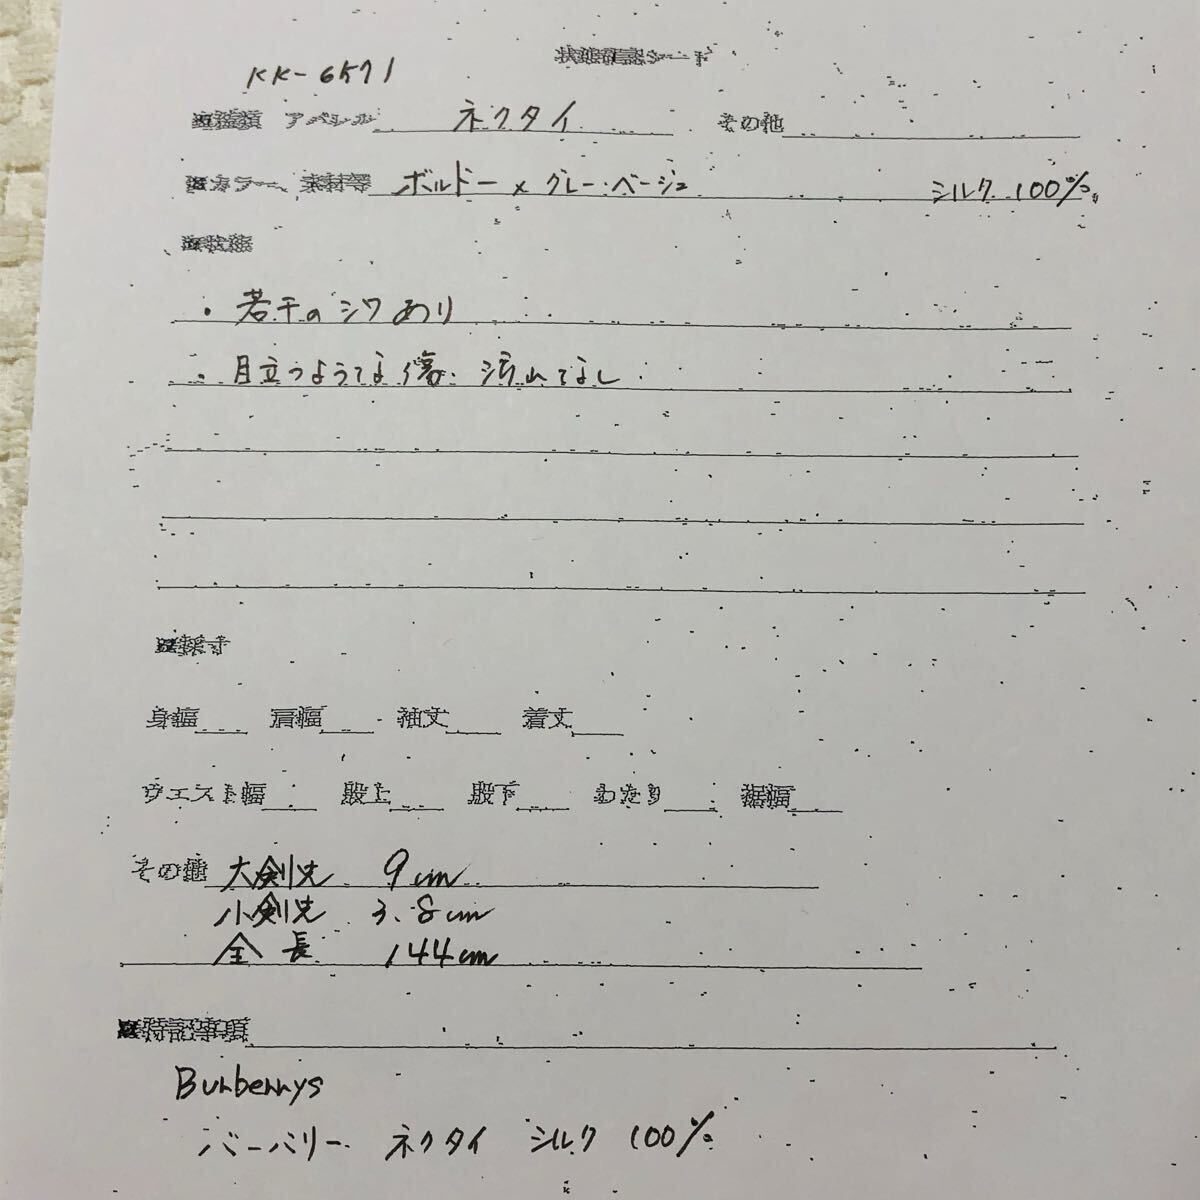 状態確認シート
KK-6571
■種類 アパレル ネクタイ その他
■カラー、素材等 ボルドー×グレー・ベージュ シルク 100%
■状態
・若干のシワあり
・目立つような傷・汚れなし
■採寸
身幅 肩幅 袖丈 着丈
ウエスト幅 股上 股下 わたり 裾幅
その他 大剣先 9cm
小剣先 3.8cm
全長 144cm
■特記事項
Burberrys
バーバリー ネクタイ シルク 100%